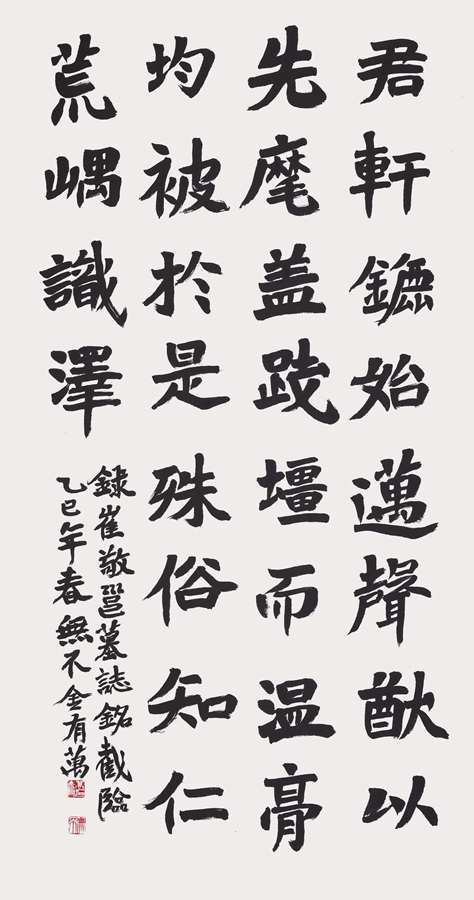 君軒鑣始邁聲猷以
先麾盖踐壇而温膏
均被於是殊俗知仁
荒嵎識澤
錄崔敬邕墓誌銘截臨
乙巳年春無不金有萬